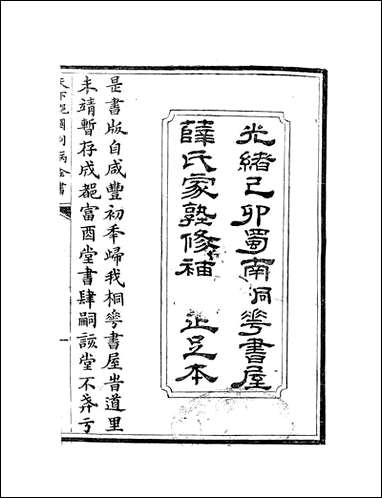 光緒己卯蜀南洞華書屋
薛氏家塾修補 足本
是書版自咸豐初年歸我桐華書屋昔道里
未靖暫存成都富酉堂書肆嗣該堂不
天下郡國利病全書